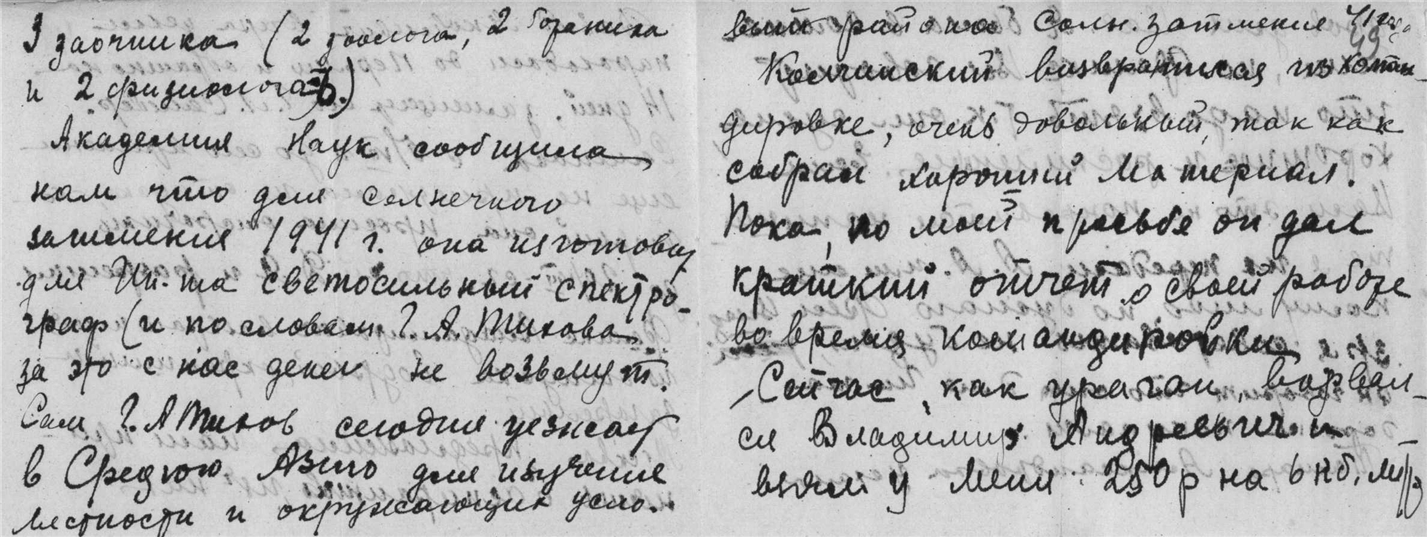 3 заочника (2 зоолога, 2 ботаника
и 2 физиолога)
Академия Наук сообщила
нам что для солнечного
затмения 1941 г. она изготовит
для Ин-та светосильный спектро-
граф (и по словам Г. А. Тихова
за это с нас денег не возьмут.
Сам Г. А Тихов сегодня уезжает
в Среднюю Азию для изучения
местности и окружающих усло-
вий района солн. затмения 41 г.
Колчинский возвратился из коман-
дировке, очень довольный, так как
собрал хороший материал.
Пока, по моей просьбе он дал
краткий отчет о своей работе
во время командировки
Сейчас, как ураган, ворвал-
ся Владимир Андреевич и
взял у меня 250 р на